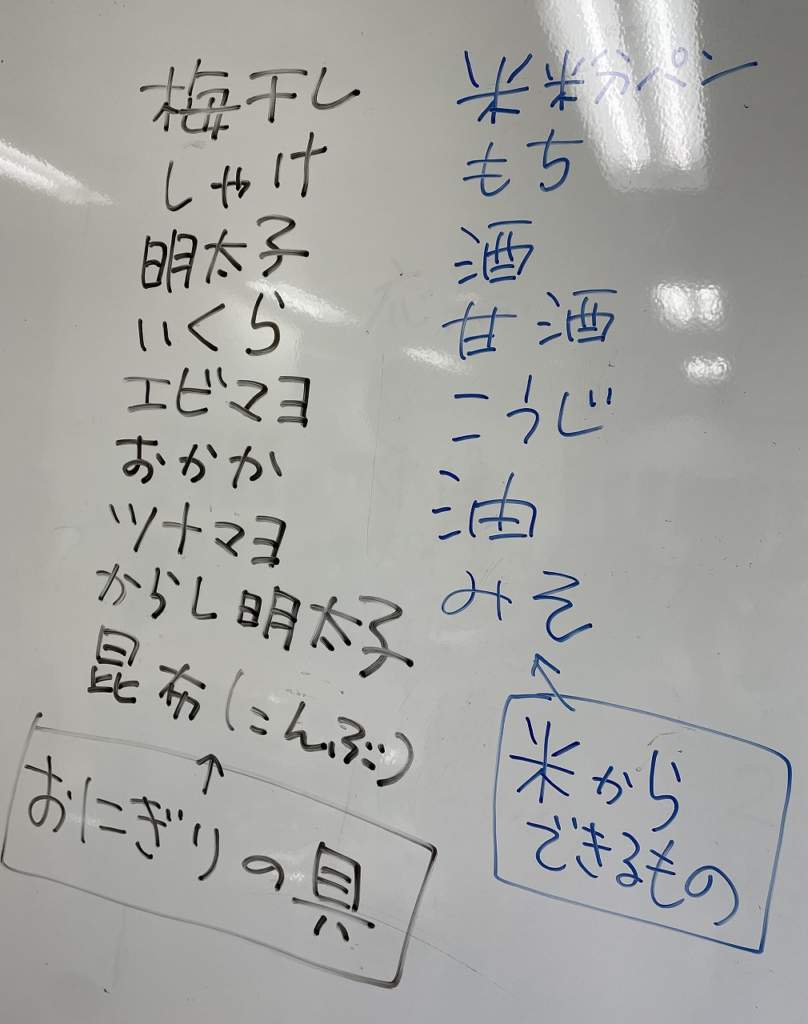 梅干し
しゃけ
明太子
いくら
エビマヨ
おかか
ツナマヨ
からし明太子
昆布(こんぶ)
↑
おにぎりの具
米粉パン
もち
酒
甘酒
こうじ
油
みそ
↑
米から
できるもの